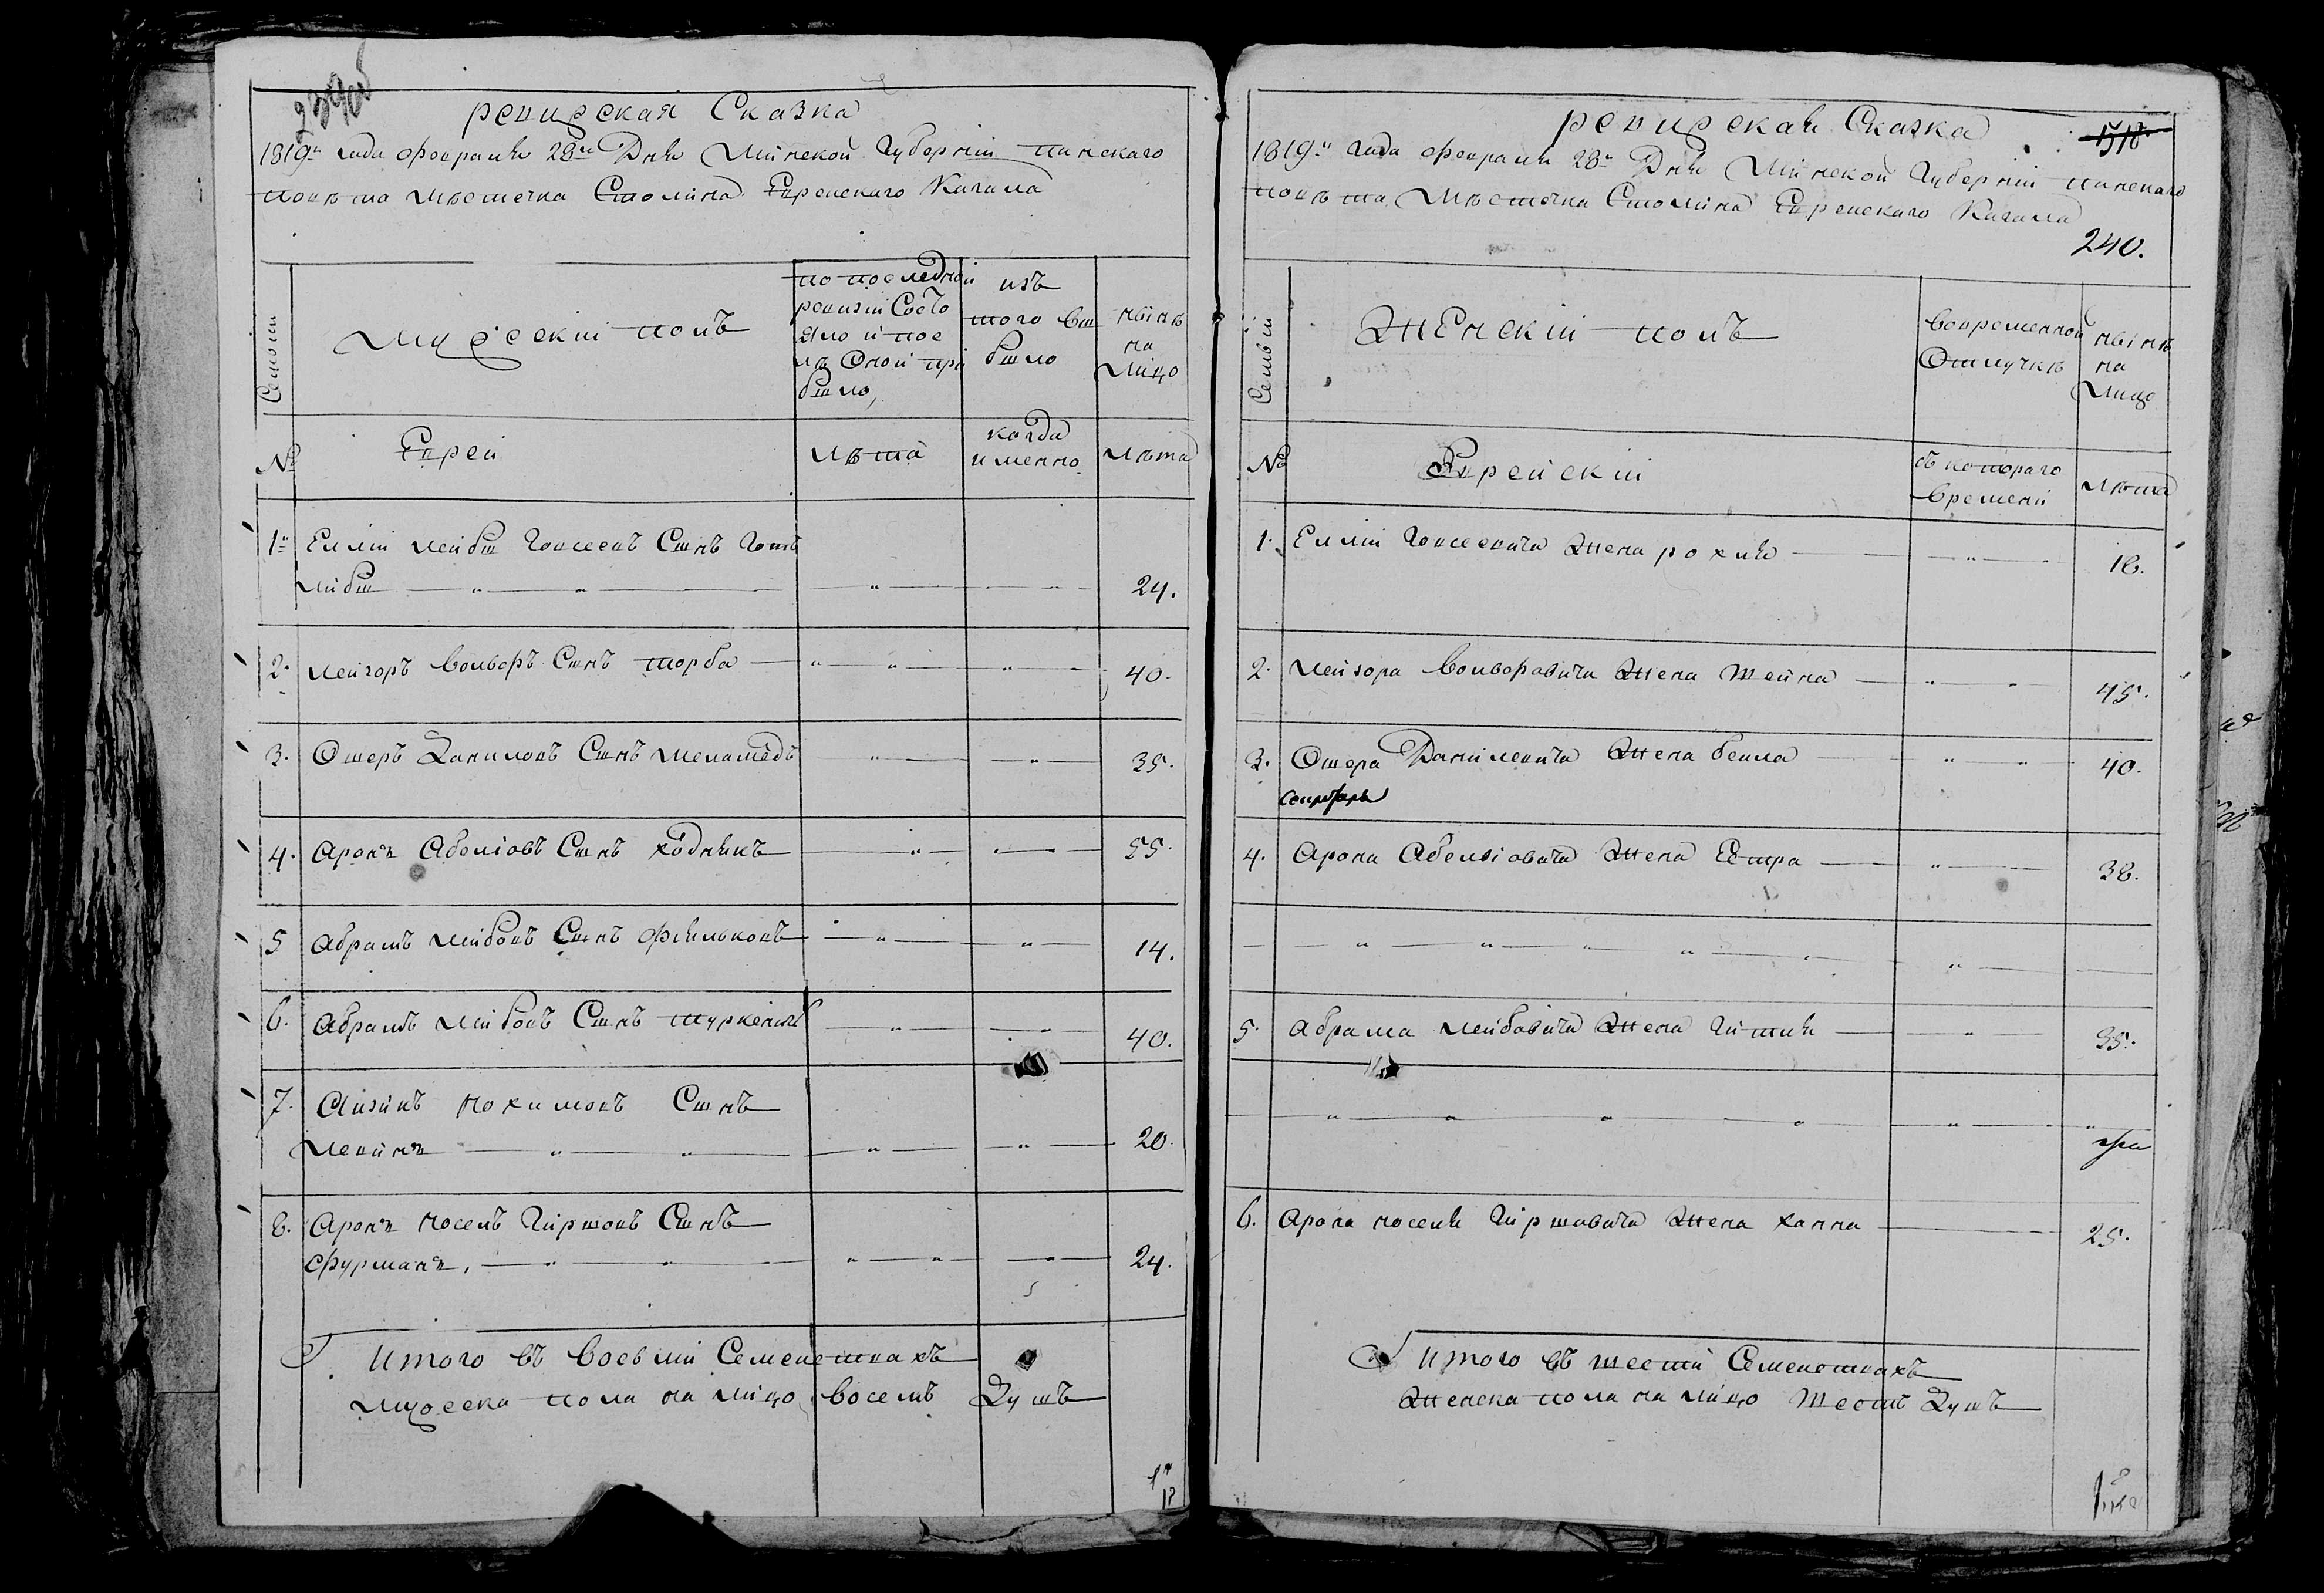 ревизская Сказка
1819го года февраля 28го Дня Минской Губернии пинскаго
повѣта Мѣстечка Столина Еврейскаго Кагала
Семьи
мужескiй полъ
по последней
ревизiи Состо
яло и пос
лѣ Оной при
было,
изъ
того вы
было
нынѣ
на
лицо
№
Евреи
лѣта
когда
именно
лѣта
1й Еллiи лейбы Iовсеевъ Сынъ
24.
2. лейзоръ волфовъ Сынъ торба 40.
3. Ошеръ Даниловъ Сынъ меламедъ 35.
4. Аронъ Абелiовъ Сынъ ходникъ 55.
5 Абрамъ лейбовъ Сынъ 14.
6. Абрамъ лейбовъ Сынъ 40.
7. Айзикъ нохимовъ Сынъ
левинъ 20.
8. Аронъ носелъ Гиршовъ Сынъ
фурманъ, 24.
Итого въ восьми Семействахъ
мужеска пола на лицо восемъ Душъ
ревизская Сказка
1819го года февраля 28го Дня Минской Губернии пинскаго
повѣта Мѣстечка Столина Еврейскаго Кагала
240.
Семьи
Женскiй полъ
Вовременной
Отлучкѣ
нынѣ
на
лицо
№
Еврейскiй
съ котораго
времени
лѣта
1. Еллiи Iовсеевича Жена рохля 18.
2. лейзора волфовича Жена Шейна 45.
3. Ошера Данилевича Жена бейла 40.
4. Арона Абелiовича Жена Естра 38.
5. Абрама лейбовича Жена Гитля 35.
6. Арона носеля Гиршовича Жена ханна 25.
Итого въ шести Семействахъ
Женска пола на лицо Шесть Душъ